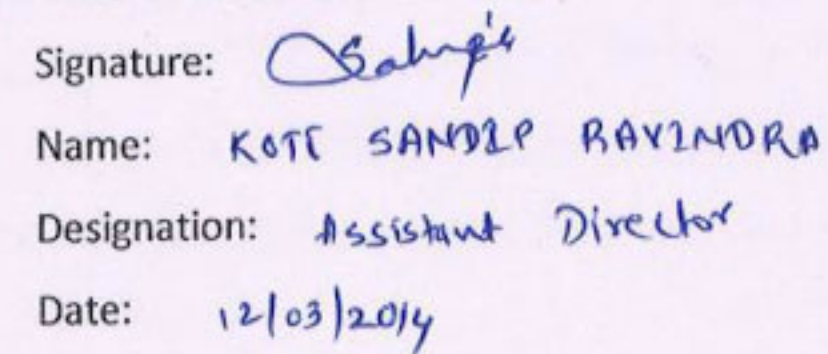 Signature:
Name: KOTE SANDIP RAVINDRA
Designation: Assistant Director
Date: 12/03/2014